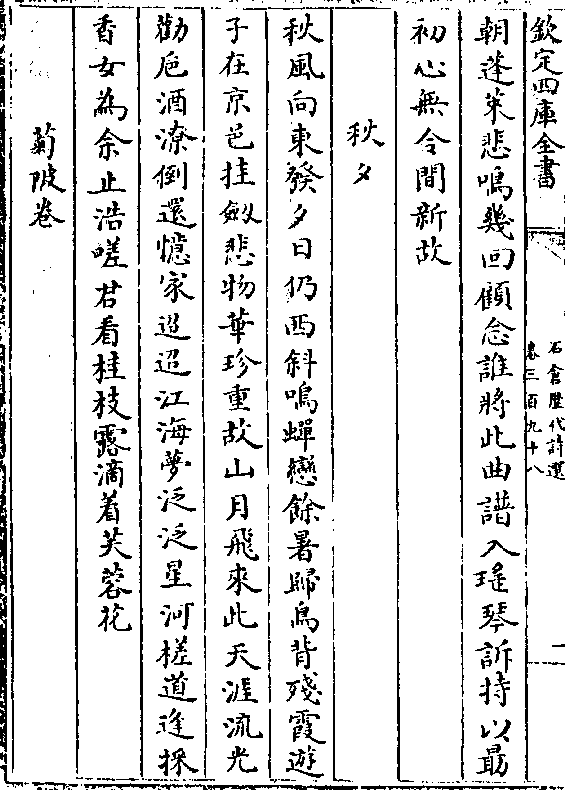 欽定四庫全書
石倉歷代詩選
卷三百九十八
一
朝蓬萊悲鳴幾回顧念誰將此曲譜入瑤琴訴持以勗
初心無令間新故
秋夕
秋風向東發夕日仍西斜鳴蟬戀餘暑歸鳥背殘霞遊
子在京邑挂劔悲物華珍重故山月飛來此天涯流光
勸巵酒潦倒還憶家迢迢江海夢泛泛星河槎道逢採
香女為余止浩嗟君看桂枝露滴着芙蓉花
菊陂卷